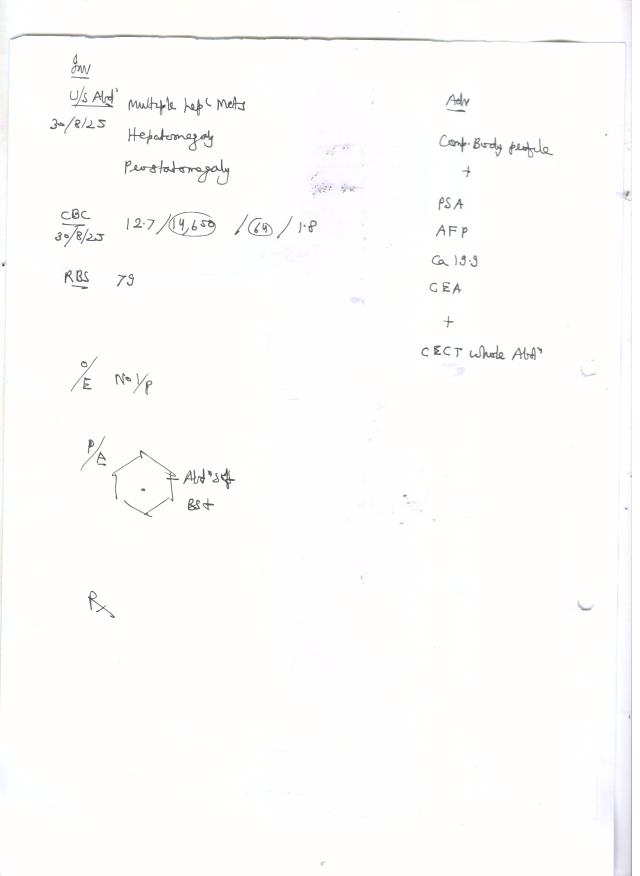 Inv
U/S Abdⁿ Multiple Hepᶜ Mets
30/8/25 Hepatomegaly
Prostatomegaly
CBC 12.7 / 14,650 / 64 / 1.8
30/8/25
RBS 79
O/E No I/P
P/A Abdⁿ soft
BS +
Rx
Adv
Comp. Body profile
+
PSA
AFP
Ca 19.9
CEA
+
CECT Whole Abdⁿ